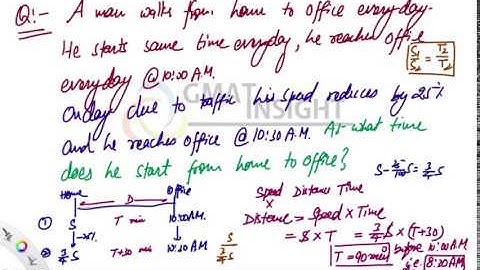 Q:- A man walks from home to office everyday.
He starts same time everyday, he reaches office
everyday @ 10:00 A.M.
S1/S2 = T2/T1
GMAT INSIGHT
Onday due to traffic his speed reduces by 25%
and he reaches office @ 10:30 A.M. At what time
does he start from home to office?
S - 25/100 S = 3/4 S
Home Office
D
① S T min 10:00 A.M.
-25%
② 3/4 S T+30 min 10:30 A.M.
S
3/4 S
Speed × Distance Time
Distance = Speed × Time
= S × T = 3/4 S × (T+30)
T = 90 min before 10:00 A.M.
i.e. 8:30 A.M.